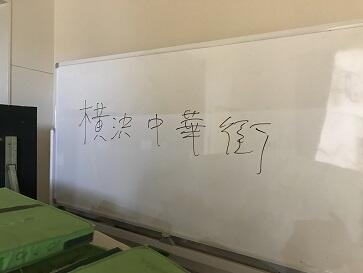 横浜中華街